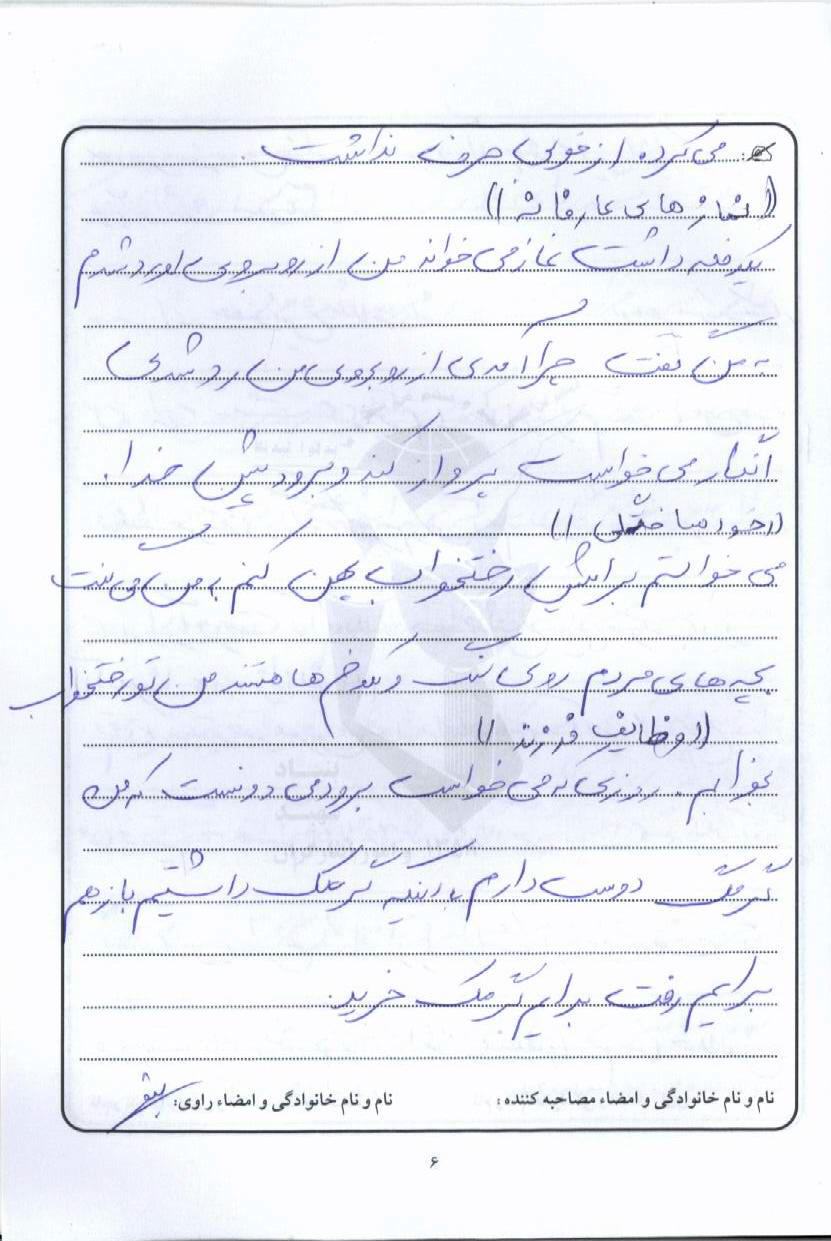 می کرده از خوبی حرف نداشت .
((نمازهای عارفانه))
یکدفعه داشت نماز می خواند من از روبروی او رد شدم
به من گفت چرا آمدی از روبروی من رد شدی
انگار می خواست پرواز کند و برود پیش خدا.
((خودساختگی))
می خواستم برایش رختخواب پهن کنم به من می گفت
بچه های مردم روی سنگ و کلوخ ها هستند من تو رختخواب
((وظایف فرزند))
بخوابم. روزی که می خواست برود می دونست که من
گرمک دوست دارم با اینکه گرمک داشتیم باز هم
برایم رفت برایم گرمک خرید.
نام و نام خانوادگی و امضاء مصاحبه کننده :
نام و نام خانوادگی و امضاء راوی:
۶